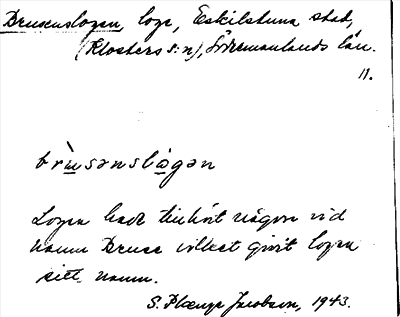 Bruseuslogen, loge, Eskilstuna stad,
(Klosters s:n), Södermanlands län.
11.
brùsənslågən
Logen hade tillhört någon vid
namn Bruse vilket givit logen
sitt namn.
S. Plænge Jacobson, 1943.